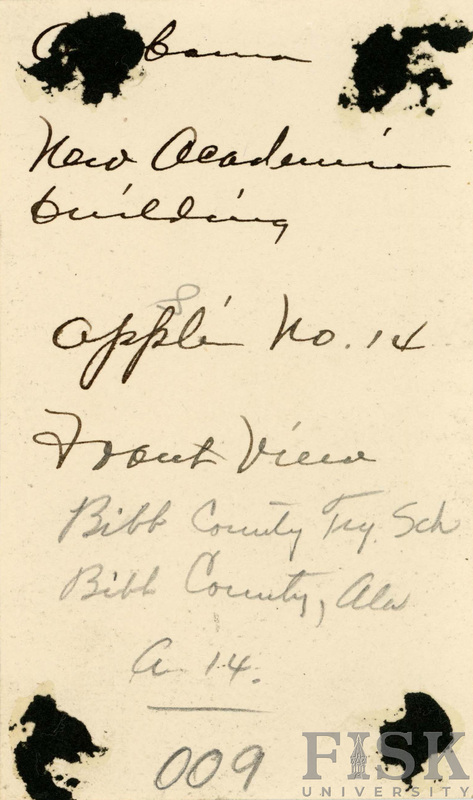 Alabama
New Academic
building
Appli. No. 14
Front View
Bibb County Trg. Sch
Bibb County, Ala
A 14.
009
FISK
UNIVERSITY